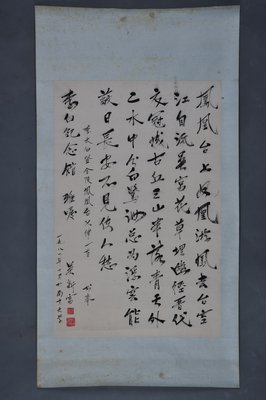 鳳凰台上鳳凰游鳳去台空
江自流吳宮花草埋幽徑晉代
衣冠成古丘三山半落青天外
二水中分白鷺洲總為浮雲能
蔽日長安不見使人愁
李太白登金陵鳳凰台七律一首 書奉
李白紀念館 雅嘱
一九八 年 于南京大學 吳新雷